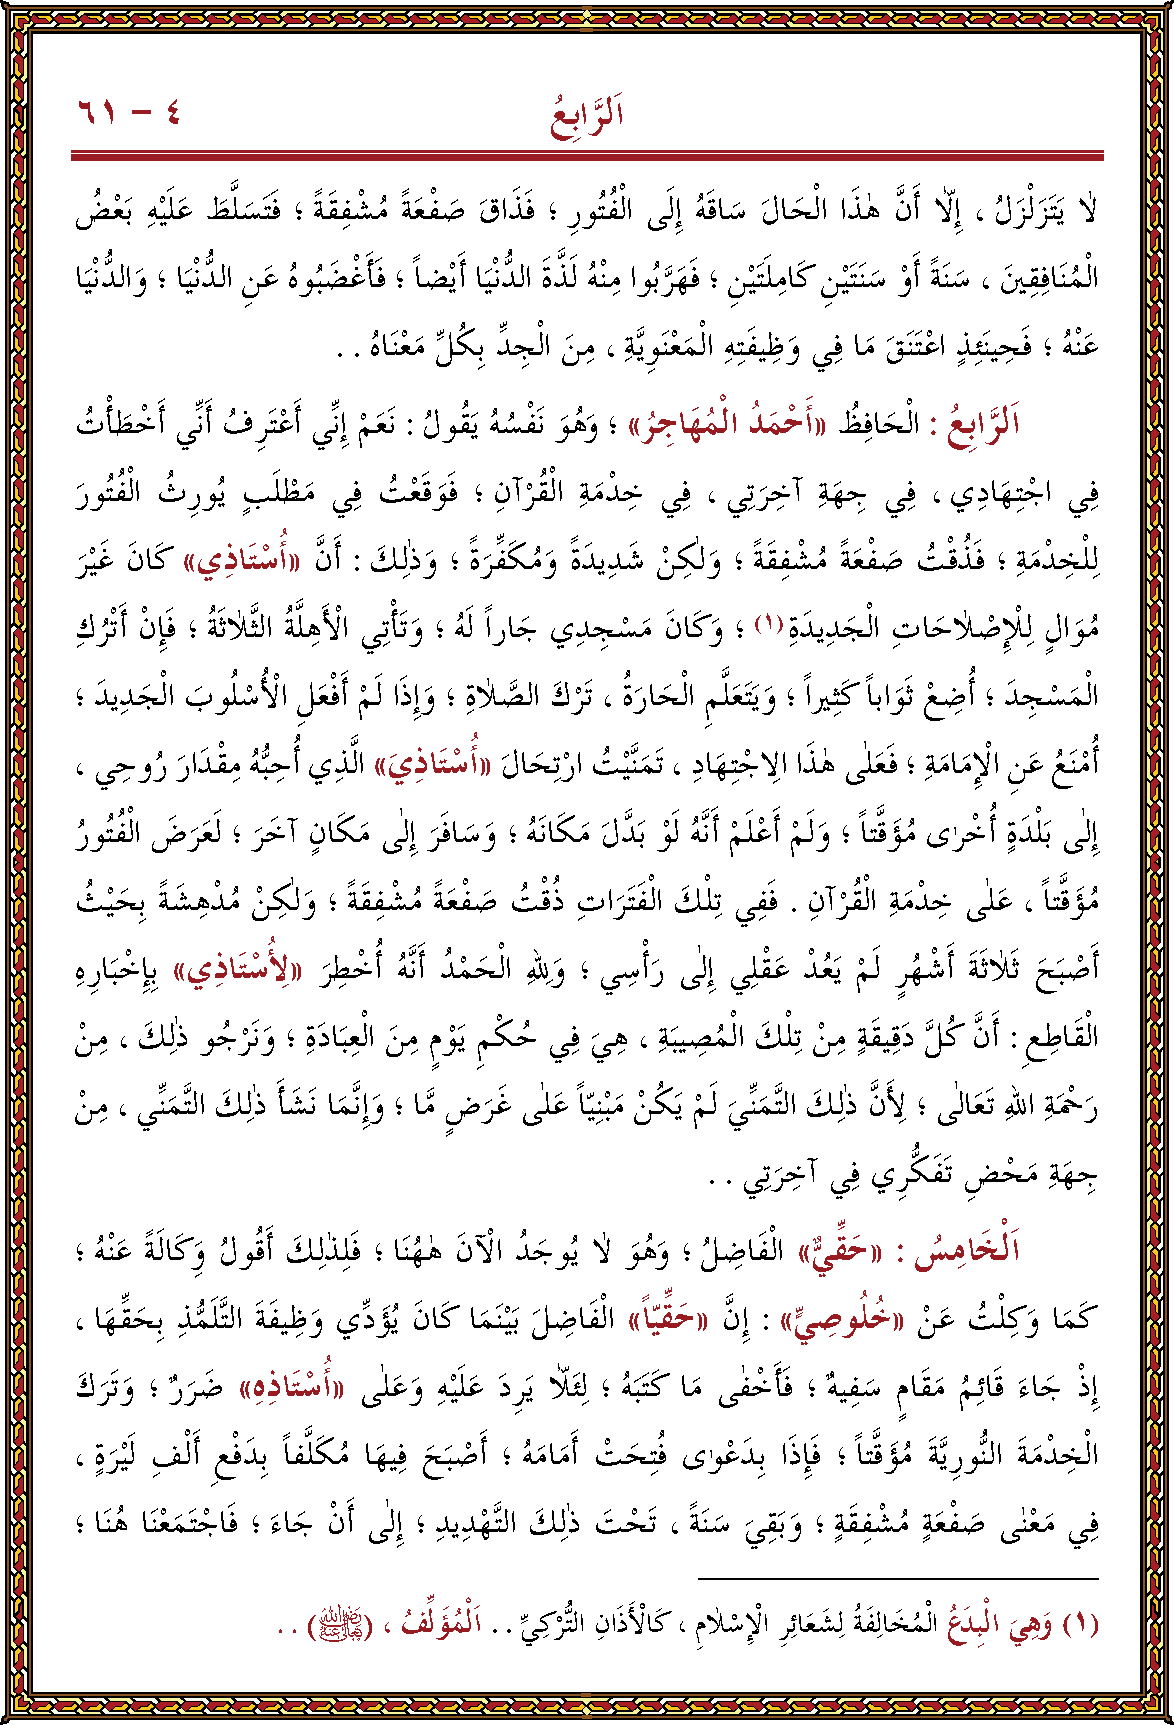 اَلرَّابِعُ
٤ – ٦١
لَا يَتَزَلْزَلُ ، إِلَّا أَنَّ هٰذَا الْحَالَ سَاقَهُ إِلَى الْفُتُورِ ؛ فَذَاقَ صَفْعَةً مُشْفِقَةً ؛ فَتَسَلَّطَ عَلَيْهِ بَعْضُ
الْمُنَافِقِينَ ، سَنَةً أَوْ سَنَتَيْنِ كَامِلَتَيْنِ ؛ فَهَرَّبُوا مِنْهُ لَذَّةَ الدُّنْيَا أَيْضاً ؛ فَأَغْضَبُوهُ عَنِ الدُّنْيَا ؛ وَالدُّنْيَا
عَنْهُ ؛ فَحِينَئِذٍ اعْتَنَقَ مَا فِي وَظِيفَتِهِ الْمَعْنَوِيَّةِ ، مِنَ الْجِدِّ بِكُلِّ مَعْنَاهُ . .
اَلرَّابِعُ : الْحَافِظُ «أَحْمَدُ الْمُهَاجِرُ» ؛ وَهُوَ نَفْسُهُ يَقُولُ : نَعَمْ إِنِّي أَعْتَرِفُ أَنِّي أَخْطَأْتُ
فِي اجْتِهَادِي ، فِي جِهَةِ آخِرَتِي ، فِي خِدْمَةِ الْقُرْآنِ ؛ فَوَقَعْتُ فِي مَطْلَبٍ يُورِثُ الْفُتُورَ
لِلْخِدْمَةِ ؛ فَذُقْتُ صَفْعَةً مُشْفِقَةً ؛ وَلٰكِنْ شَدِيدَةً وَمُكَفِّرَةً ؛ وَذٰلِكَ : أَنَّ «أُسْتَاذِي» كَانَ غَيْرَ
مُوَالٍ لِلْإِصْلَاحَاتِ الْجَدِيدَةِ(١) ؛ وَكَانَ مَسْجِدِي جَاراً لَهُ ؛ وَتَأْتِي الْأَهِلَّةُ الثَّلَاثَةُ ؛ فَإِنْ أَتْرُكِ
الْمَسْجِدَ ؛ أُضِعْ ثَوَاباً كَثِيراً ؛ وَيَتَعَلَّمِ الْحَارَةُ ، تَرْكَ الصَّلَاةِ ؛ وَإِذَا لَمْ أَفْعَلِ الْأُسْلُوبَ الْجَدِيدَ ؛
أُمْنَعُ عَنِ الْإِمَامَةِ ؛ فَعَلٰى هٰذَا الِاجْتِهَادِ ، تَمَنَّيْتُ ارْتِحَالَ «أُسْتَاذِيَ» الَّذِي أُحِبُّهُ مِقْدَارَ رُوحِي ،
إِلٰى بَلْدَةٍ أُخْرٰى مُؤَقَّتاً ؛ وَلَمْ أَعْلَمْ أَنَّهُ لَوْ بَدَّلَ مَكَانَهُ ؛ وَسَافَرَ إِلٰى مَكَانٍ آخَرَ ؛ لَعَرَضَ الْفُتُورُ
مُؤَقَّتاً ، عَلٰى خِدْمَةِ الْقُرْآنِ . فَفِي تِلْكَ الْفَتَرَاتِ ذُقْتُ صَفْعَةً مُشْفِقَةً ؛ وَلٰكِنْ مُدْهِشَةً بِحَيْثُ
أَصْبَحَ ثَلَاثَةَ أَشْهُرٍ لَمْ يَعُدْ عَقْلِي إِلٰى رَأْسِي ؛ وَلِلهِ الْحَمْدُ أَنَّهُ أُخْطِرَ «لِأُسْتَاذِي» بِإِخْبَارِهِ
الْقَاطِعِ : أَنَّ كُلَّ دَقِيقَةٍ مِنْ تِلْكَ الْمُصِيبَةِ ، هِيَ فِي حُكْمِ يَوْمٍ مِنَ الْعِبَادَةِ ؛ وَنَرْجُو ذٰلِكَ ، مِنْ
رَحْمَةِ اللهِ تَعَالٰى ؛ لِأَنَّ ذٰلِكَ التَّمَنِّيَ لَمْ يَكُنْ مَبْنِيّاً عَلٰى غَرَضٍ مَّا ؛ وَإِنَّمَا نَشَأَ ذٰلِكَ التَّمَنِّي ، مِنْ
جِهَةِ مَحْضِ تَفَكُّرِي فِي آخِرَتِي . .
اَلْخَامِسُ : «حَقِّيٌّ» الْفَاضِلُ ؛ وَهُوَ لَا يُوجَدُ الْآنَ هٰهُنَا ؛ فَلِذٰلِكَ أَقُولُ وِكَالَةً عَنْهُ ؛
كَمَا وَكِلْتُ عَنْ «خُلُوصِيٍّ» : إِنَّ «حَقِّيّاً» الْفَاضِلَ بَيْنَمَا كَانَ يُؤَدِّي وَظِيفَةَ التَّلَمُّذِ بِحَقِّهَا ،
إِذْ جَاءَ قَائِمُ مَقَامٍ سَفِيهٌ ؛ فَأَخْفٰى مَا كَتَبَهُ ؛ لِئَلَّا يَرِدَ عَلَيْهِ وَعَلٰى «أُسْتَاذِهِ» ضَرَرٌ ؛ وَتَرَكَ
الْخِدْمَةَ النُّورِيَّةَ مُؤَقَّتاً ؛ فَإِذَا بِدَعْوٰى فُتِحَتْ أَمَامَهُ ؛ أَصْبَحَ فِيهَا مُكَلَّفاً بِدَفْعِ أَلْفِ لَيْرَةٍ ،
فِي مَعْنٰى صَفْعَةٍ مُشْفِقَةٍ ؛ وَبَقِيَ سَنَةً ، تَحْتَ ذٰلِكَ التَّهْدِيدِ ؛ إِلٰى أَنْ جَاءَ ؛ فَاجْتَمَعْنَا هُنَا ؛
(١) وَهِيَ الْبِدَعُ الْمُخَالِفَةُ لِشَعَائِرِ الْإِسْلَامِ ، كَالْأَذَانِ التُّرْكِيِّ . . اَلْمُؤَلِّفُ ، (رَضِيَ اللهُ تَعَالَى عَنْهُ) . .